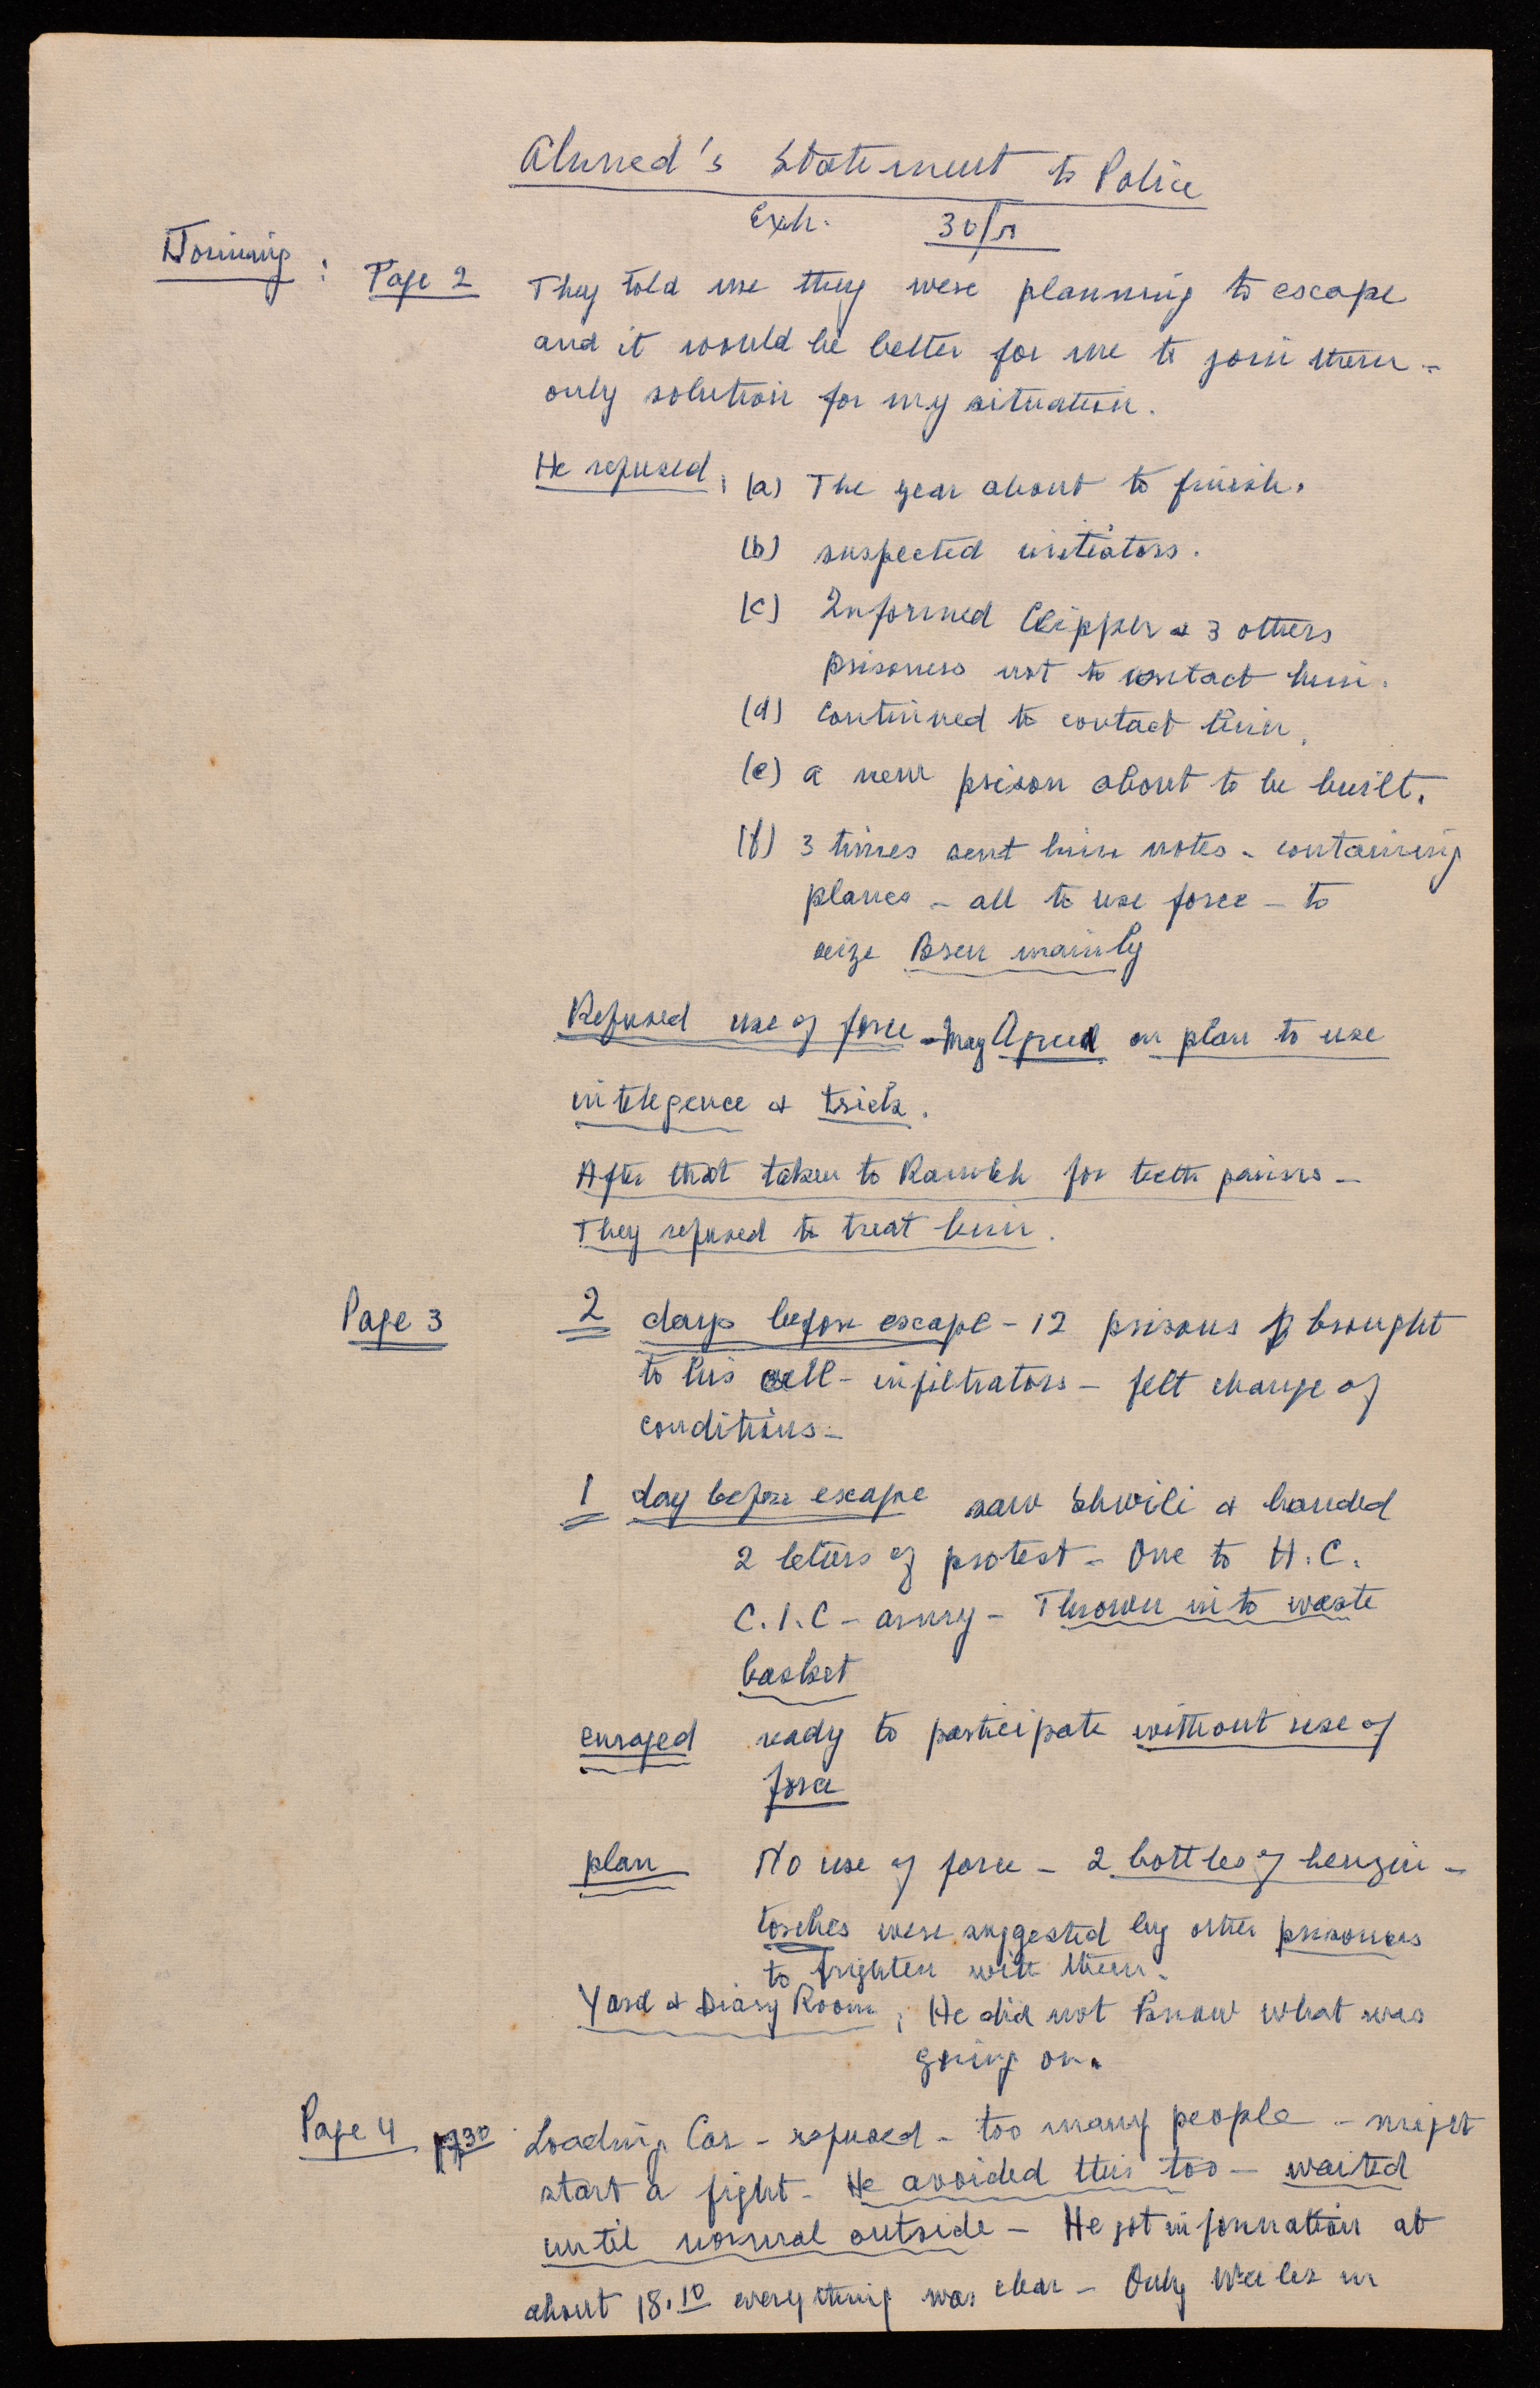 Ahmed's Statement to Police
Exh. 30/
Joining : Page 2 They told me they were planning to escape
and it would be better for me to join them -
only solution for my situation.
He refused : (a) The year about to finish.
(b) suspected initiators.
(c) Informed Clipper & 3 others
prisoners not to contact him.
(d) Continued to contact him.
(e) a new prison about to be built.
(f) 3 times sent him notes - containing
planes - all to use force - to
seize Bren mainly
Refused use of force - may Agreed on plan to use
intelegence & trick.
After that taken to Ramleh for teeth pains -
They refused to treat him.
Page 3 2 days before escape - 12 prisons brought
to his cell - infiltrators - felt change of
conditions -
1 day before escape saw Shwili & handed
2 letters of protest - One to H.C.
C.I.C - army - Thrown into waste
basket
enraged ready to participate without use of
force
plan No use of force - 2 bottles of benzin -
torches were suggested by other prisoners
to frighten with them.
Yard & Diary Room ; He did not know what was
going on.
Page 4 1730 Loading Car - refused - too many people - might
start a fight - He avoided this too - waited
until normal outside - He got information at
about 18.10 everything was clear - Only in